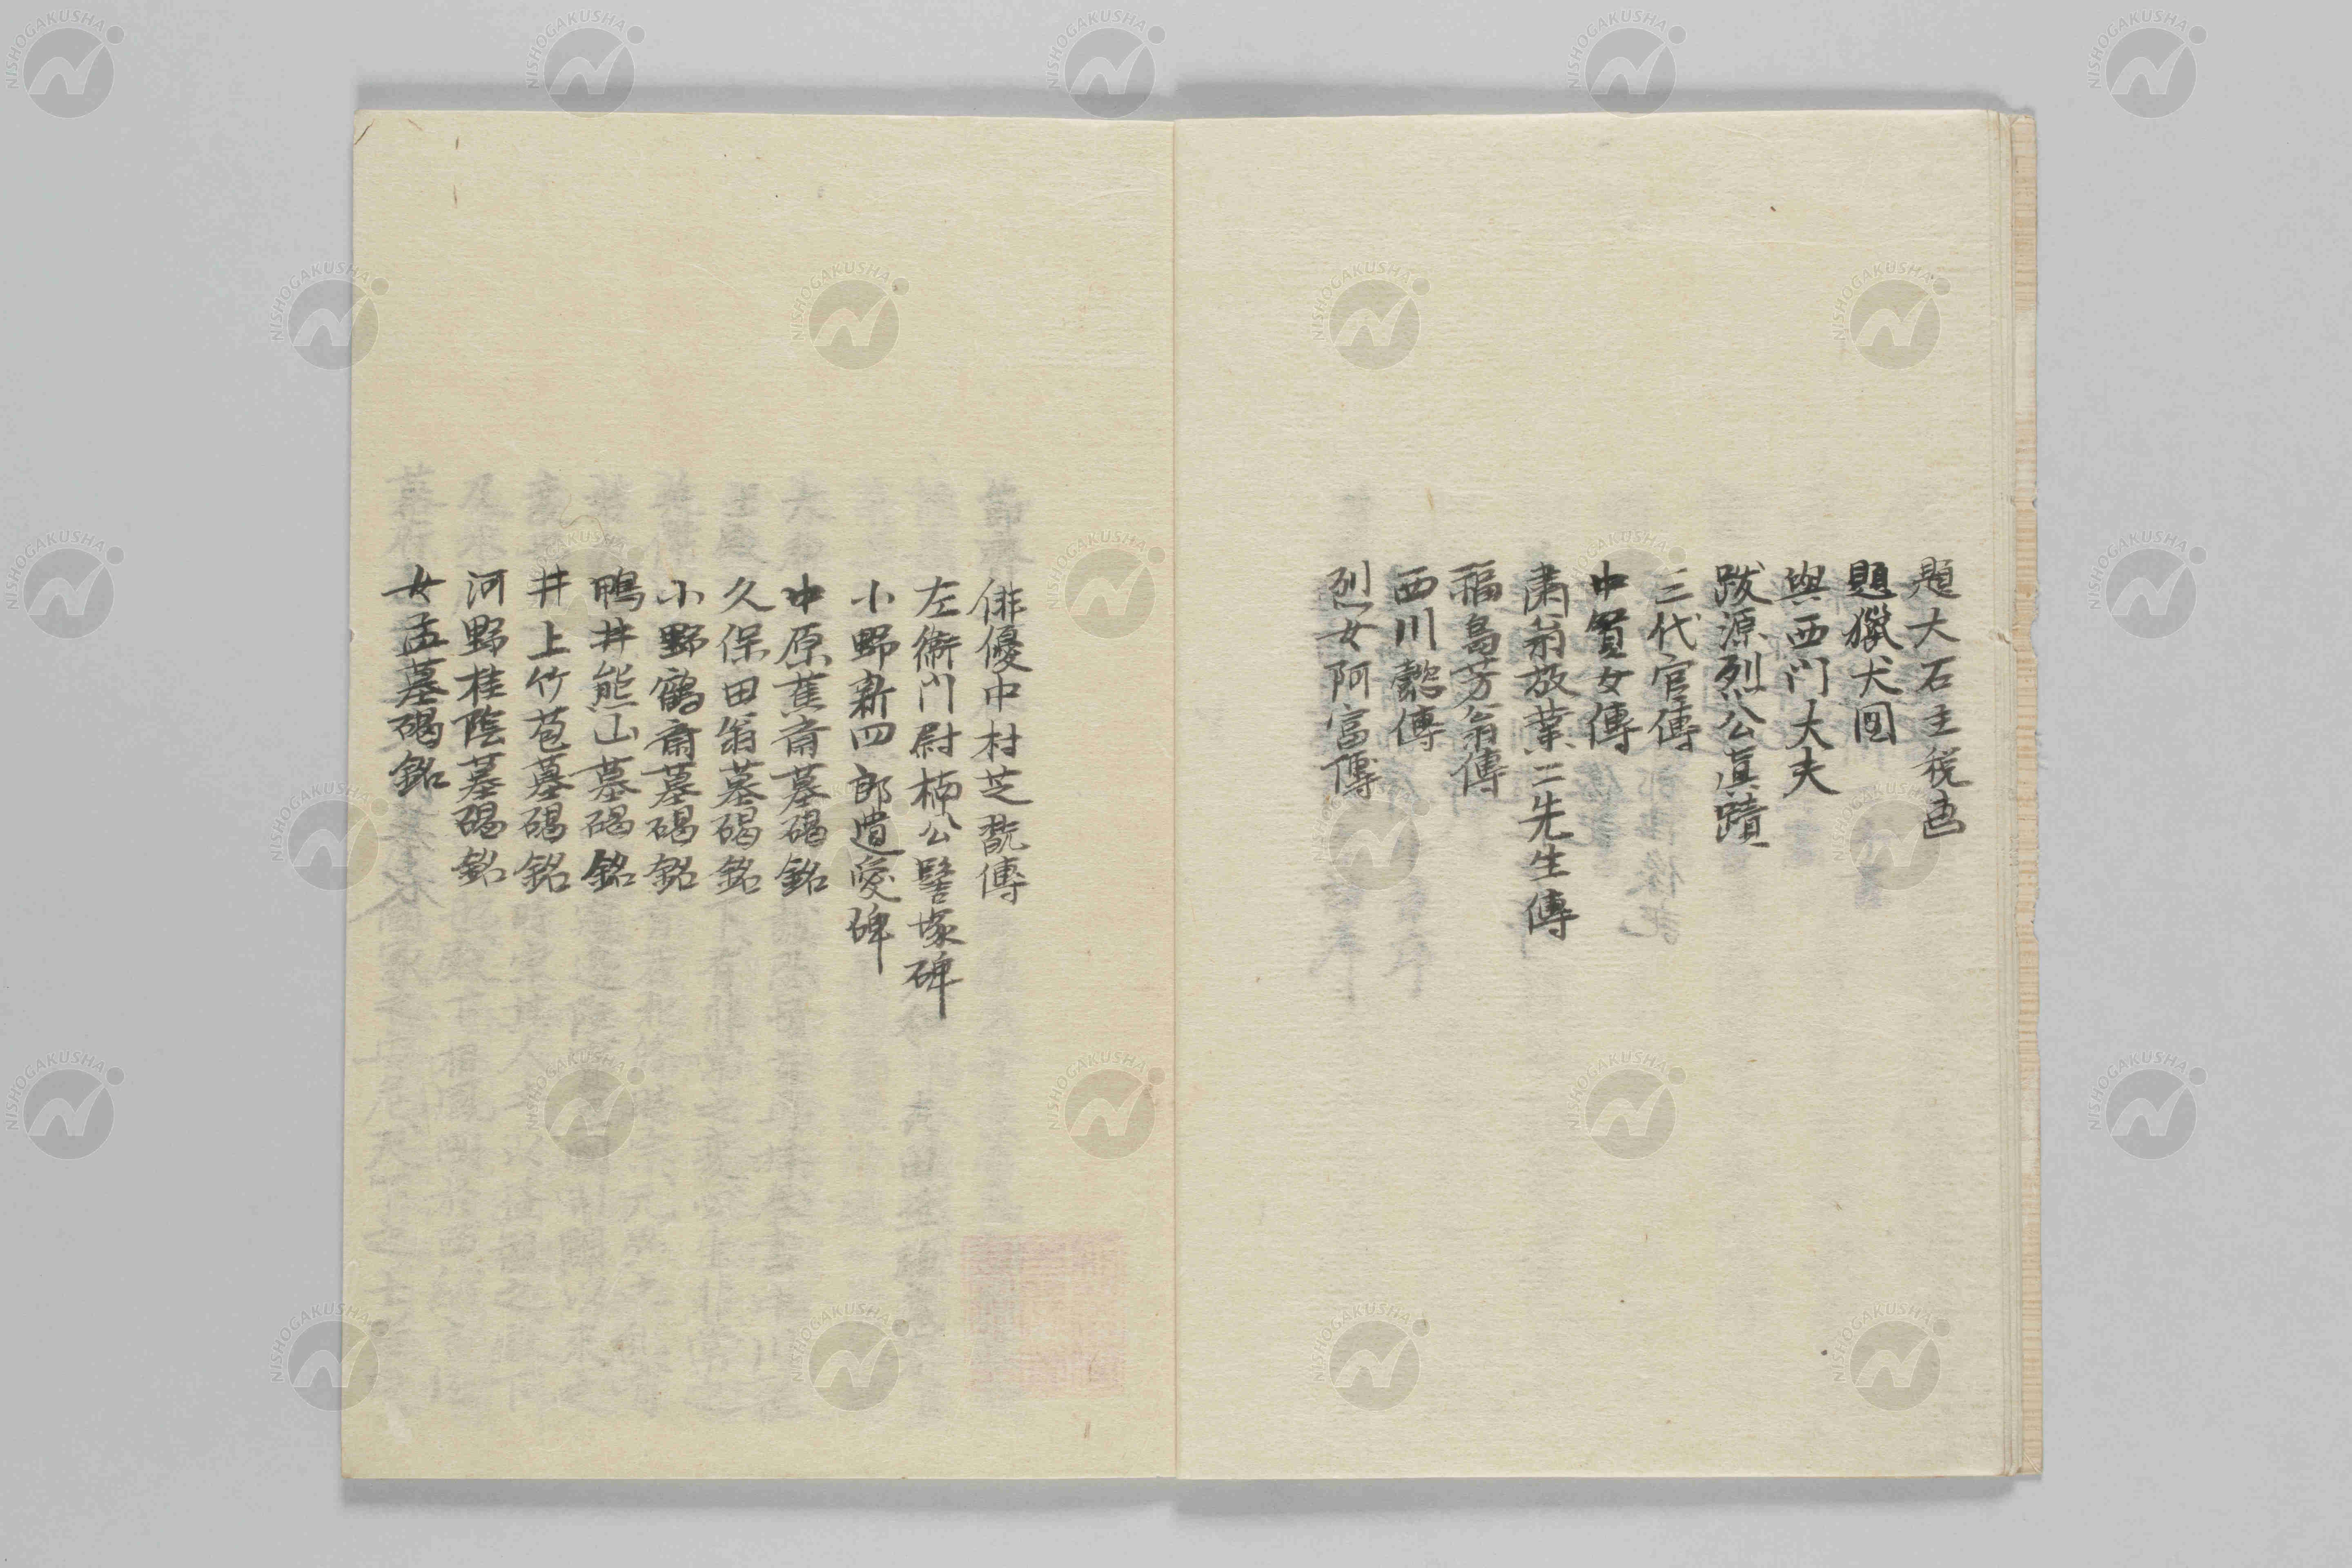 題大石主税画
題獵犬図
與西门大夫
跋源烈公真蹟
三代官傳
中貭女傳
肅翁放業二先生傳
福島芳翁傳
西川懿傳
烈女阿富傳
俳優中村芝翫傳
左衛门尉楠公髻塚碑
小野新四郎遺愛碑
中原蕉齋墓碣銘
久保田翁墓碣銘
小野鶴齋墓碣銘
鴨井熊山墓碣銘
井上竹苞墓碣銘
河野桂陰墓碣銘
女孟墓碣銘
NISHOGAKUSHA